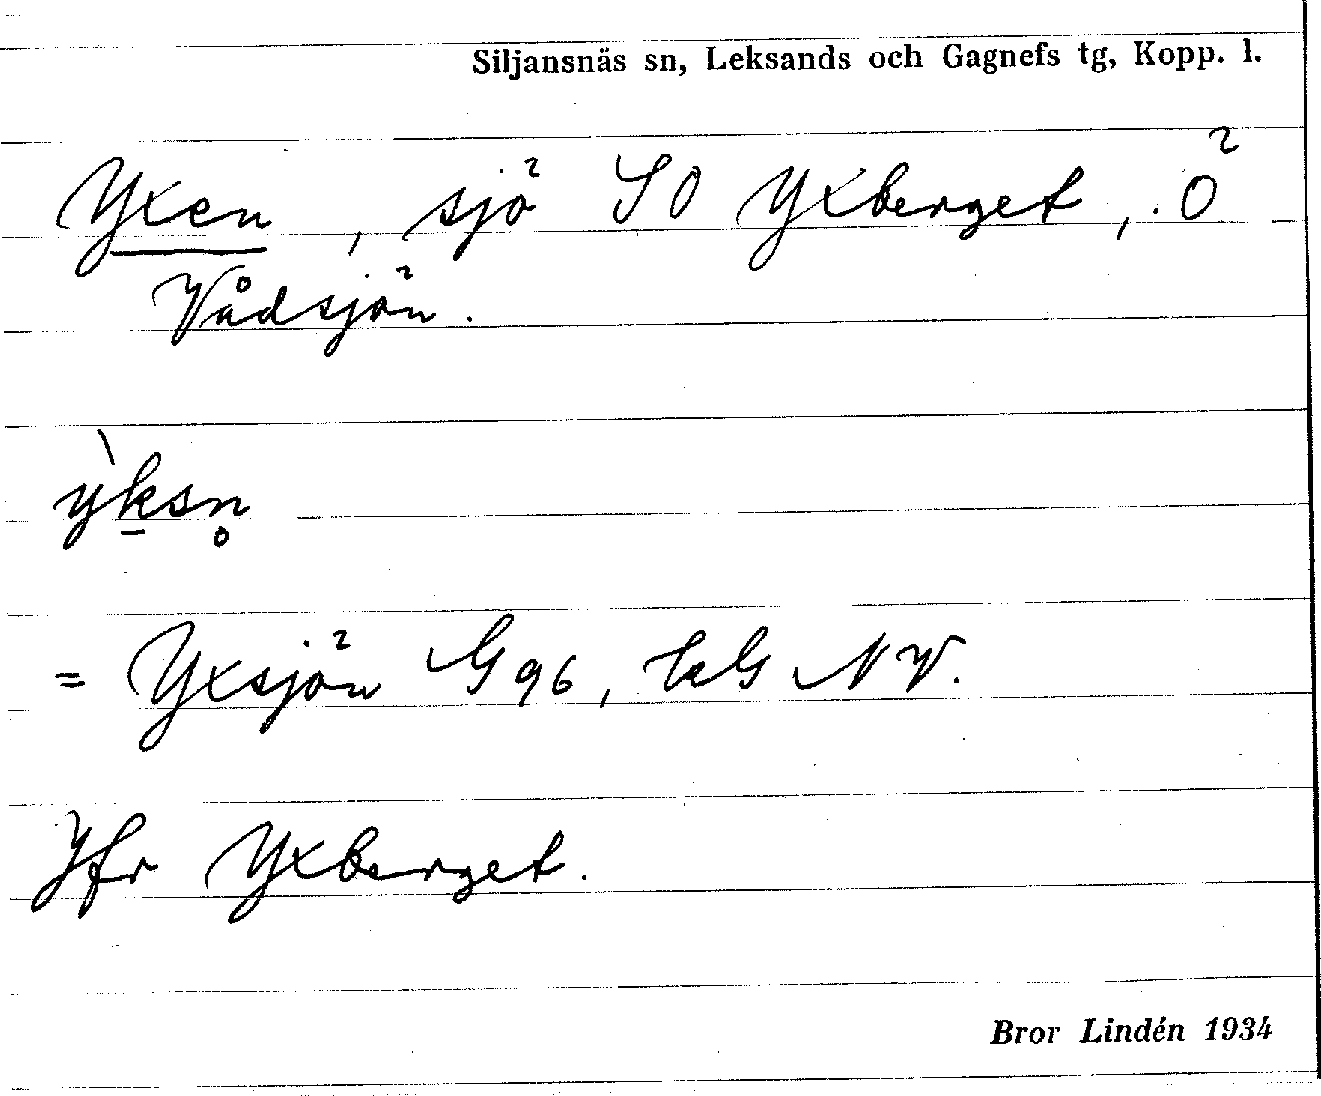 Siljansnäs sn, Leksands och Gagnefs tg, Kopp. l.
Yxen, sjö SO Yxberget, Ö
Vådsjön.
ỳ̖k̠sn̥
= Yxsjön G 96, bG NV.
Jfr Yxberget.
Bror Lindén 1934